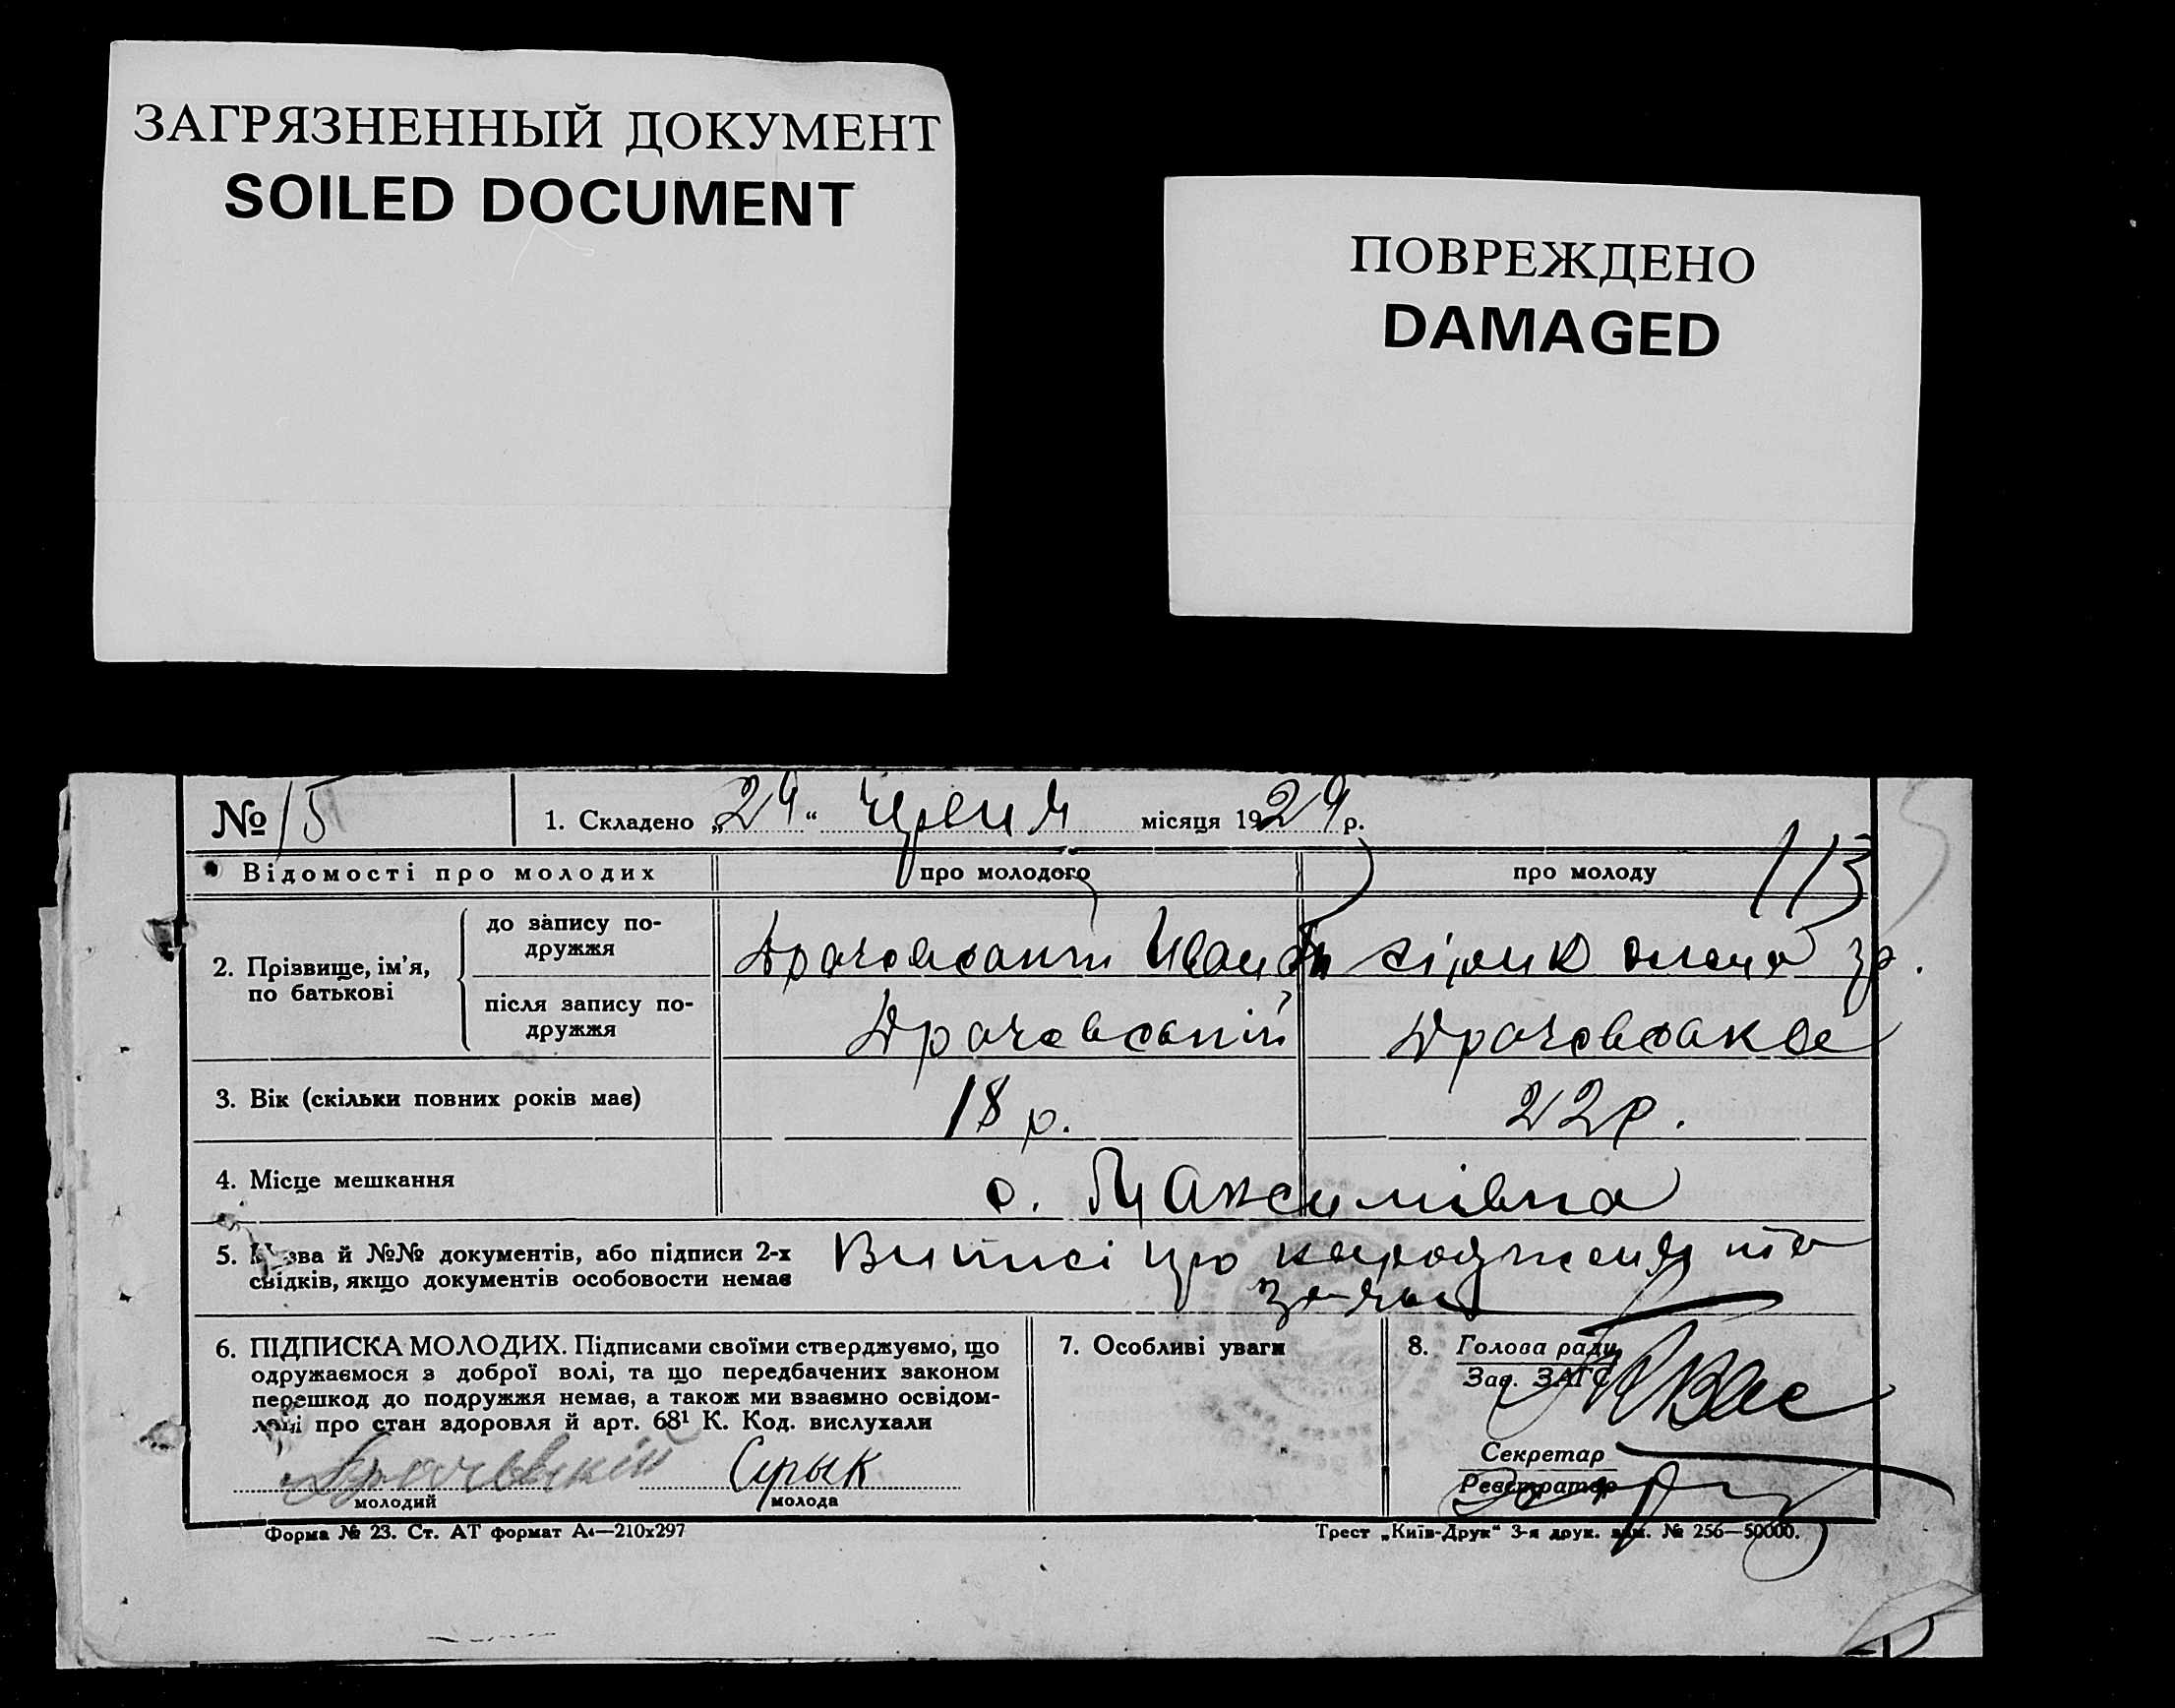 ЗАГРЯЗНЕННЫЙ ДОКУМЕНТ
SOILED DOCUMENT
ПОВРЕЖДЕНО
DAMAGED
№ 15
1. Складено „24“ червня місяця 1929 р.
113
Відомості про молодих
про молодого
про молоду
2. Прізвище, ім’я, по батькові
до запису по-
дружжя
Драчевський Іван
після запису по-
дружжя
Драчевський
3. Вік (скільки повних років має)
18 р.
22 р.
4. Місце мешкання
с. Максимівка
5. Назва й №№ документів, або підписи 2-х
свідків, якщо документів особовости немає
Виписі про народження та
6. ПІДПИСКА МОЛОДИХ. Підписами своїми стверджуємо, що
одружаємося з доброї волі, та що передбачених законом
перешкод до подружжя немає, а також ми взаємно освідом-
лені про стан здоровля й арт. 68¹ К. Код. вислухали
молодий
Сирык
молода
7. Особливі уваги
8. Голова ради
Зав. ЗАГС
Секретар
Реєстратор
Форма № 23. Ст. АТ формат А4—210х297
Трест „Київ-Друк“ 3-я друк. зам. № 256—50000.